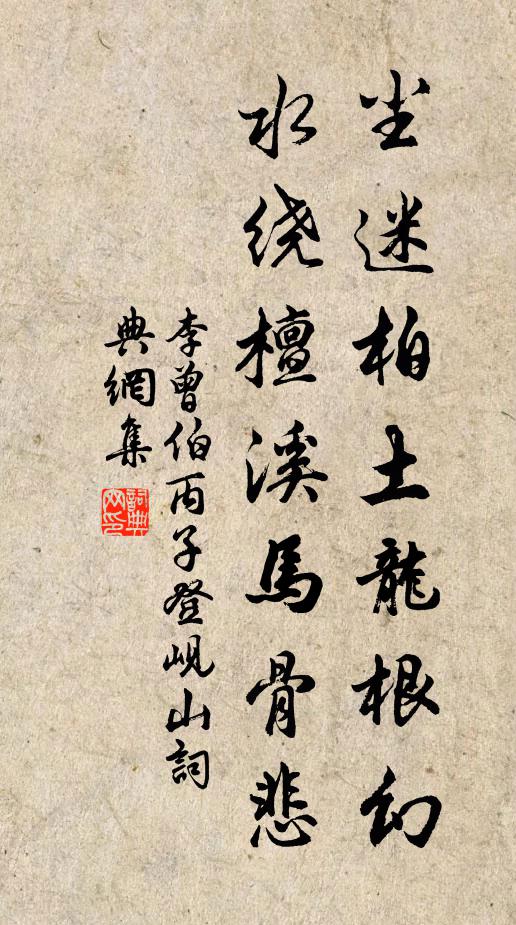 尘迷柏土龍根幻
水绕檀溪馬骨悲
李曾伯丙子登岘山詞
典網集
詞典
网印